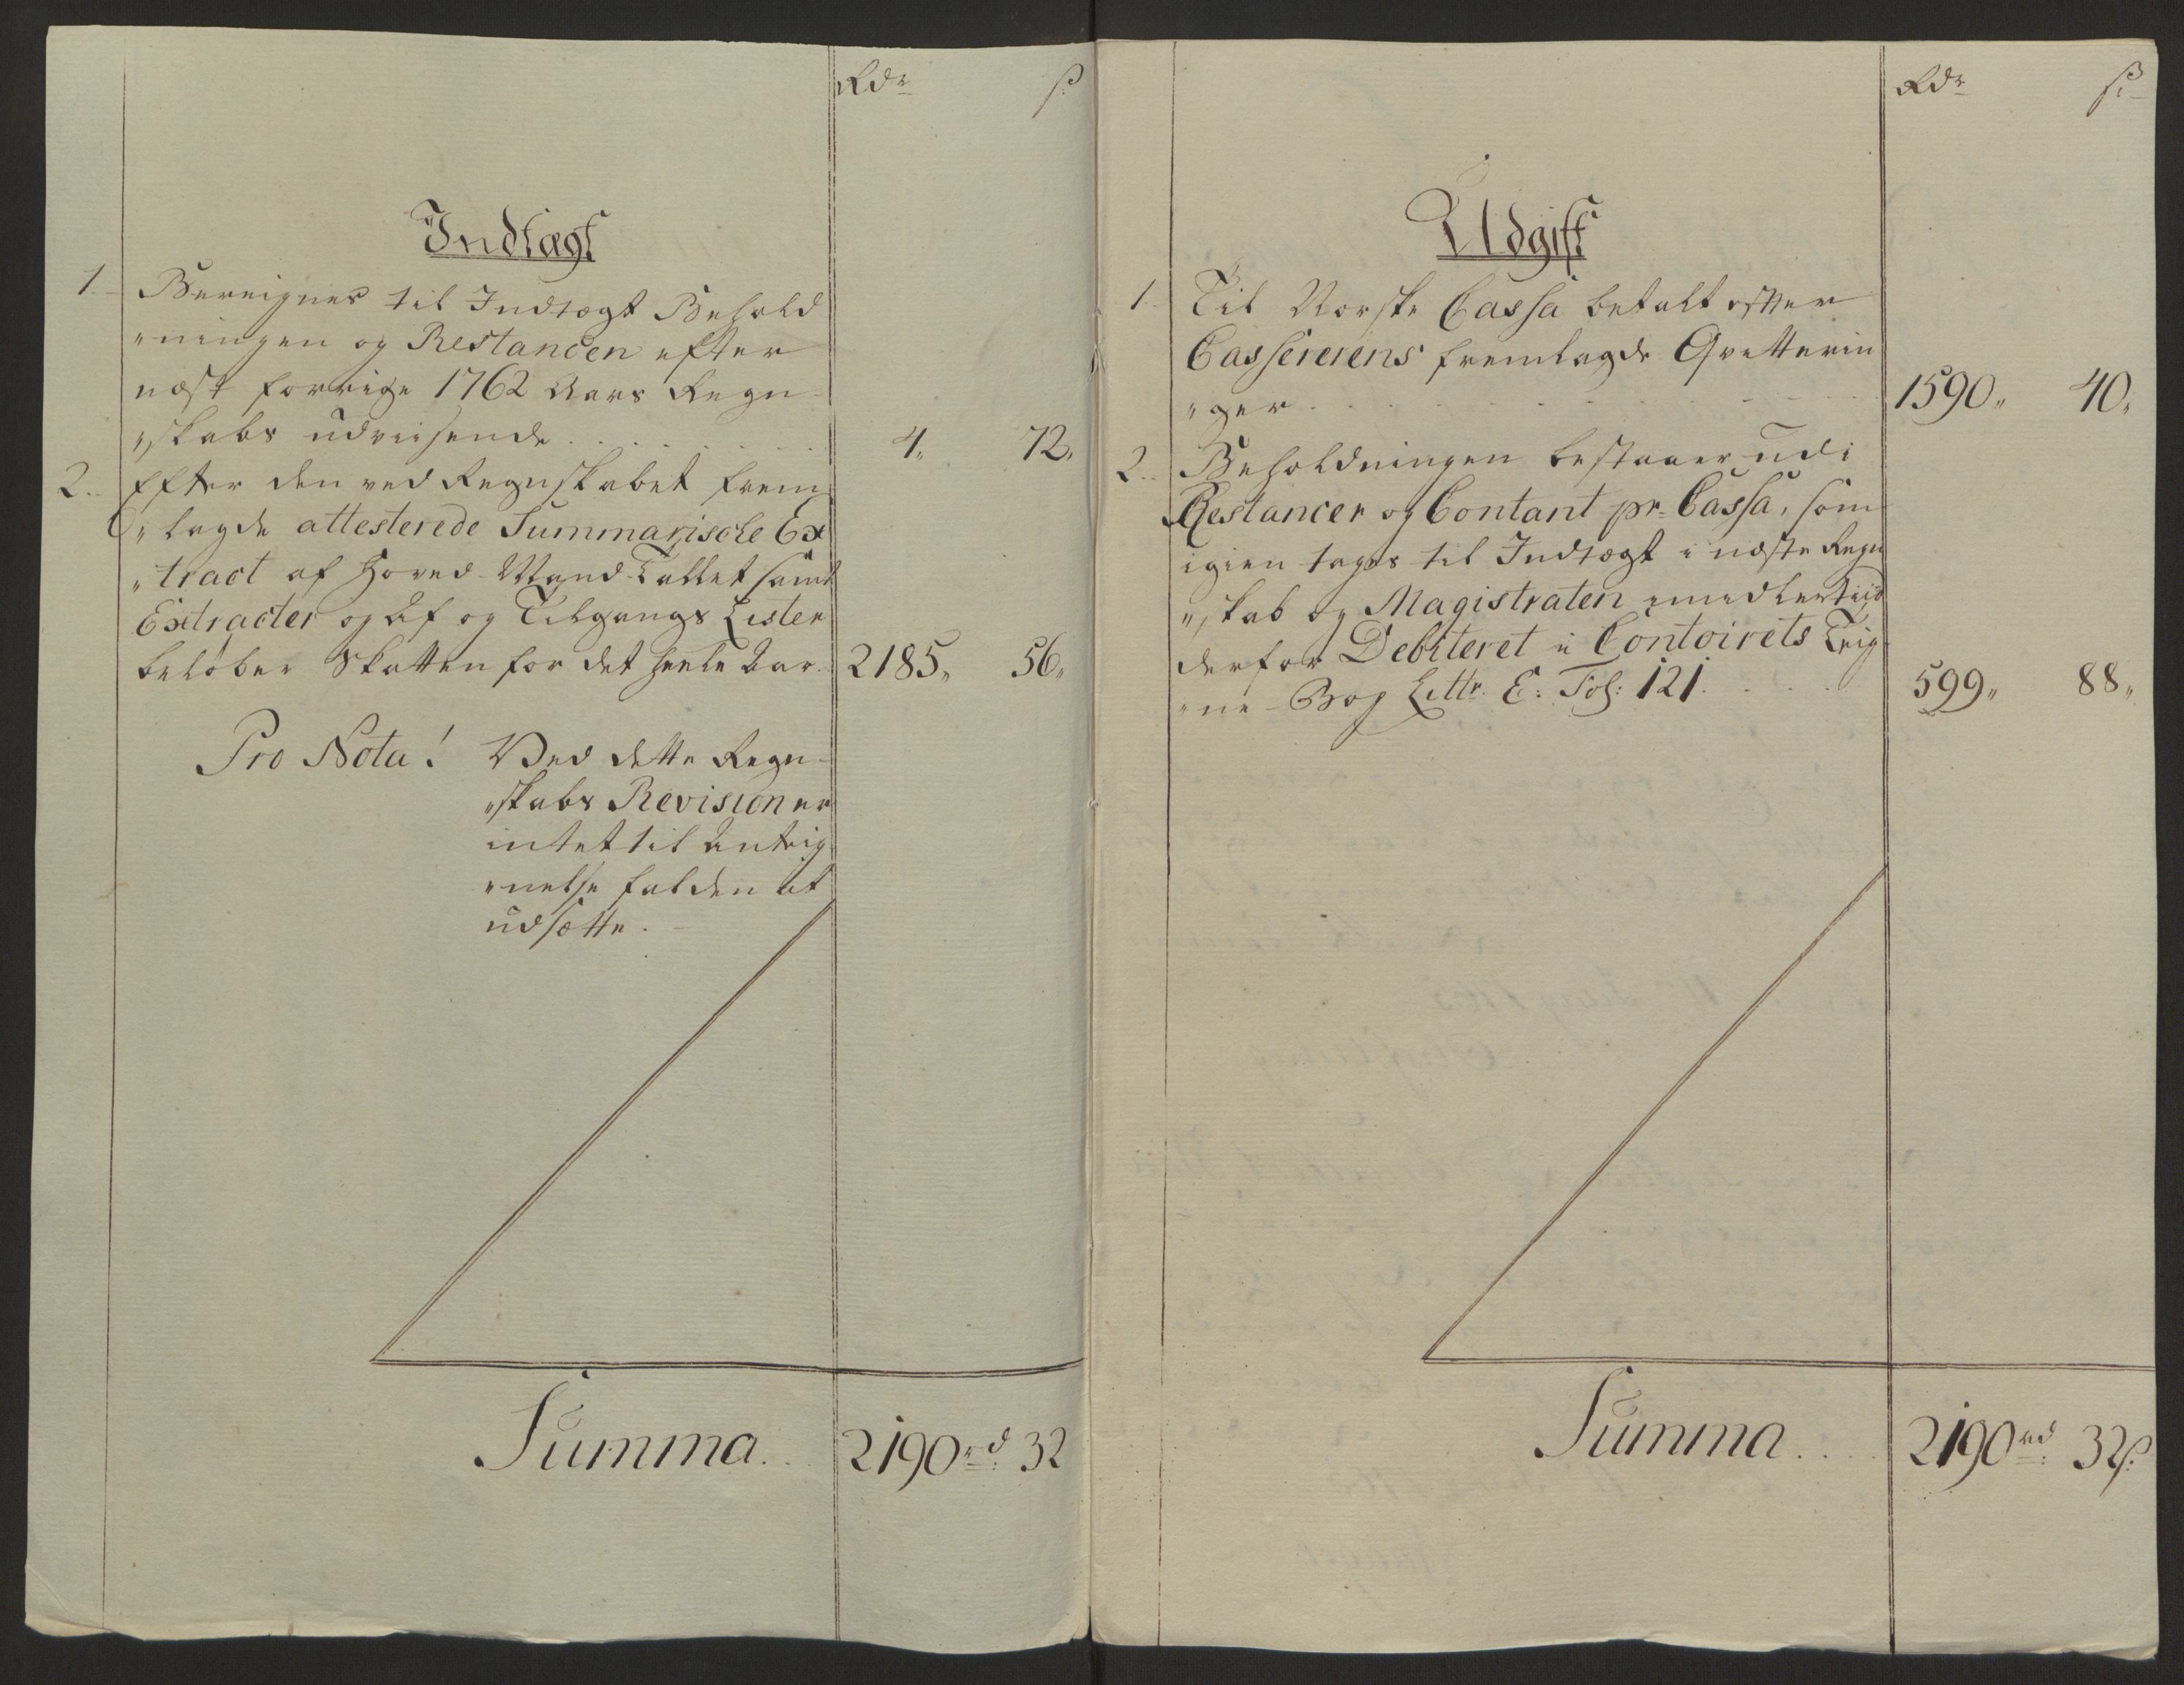 Rdr ß
Indtægt
1. Bereignes til Indtægt Behold
"ningen og Restancen efter
næst forrige 1762 Aars Regn-
"skabs udviisende . . . . . . 4" 72"
2. Efter den ved Regnskabet frem
"lagde attesterede Summariske Ex
"tract af Hoved-Mand-Tallet samt
Extracter og Af og Tilgangs Lister
beløber Skatten for det heele Aar. 2185" 56"
Pro Nota! Ved dette Regn-
"skabs Revision er
intet til Anteig
"nelse falden at
udsætte.
Summa. . . 2190rd 32
Rdr ß
Udgift
1. Til Norske Cassa betalt efter
Cassererens fremlagde Qvitterin
"ger . . . . . . . . 1590" 40"
2. Beholdningen bestaaer udi
Restancer og Contant pr Cassa, som
igien tages til Indtægt i næste Regn
"skab og Magistraten imidlertiid
derfor Debiteret i Contoirets Teig
"ne-Bog Littr. E: Fol: 121. . . . . 599" 88"
Summa. . . . 2190rd 32ß